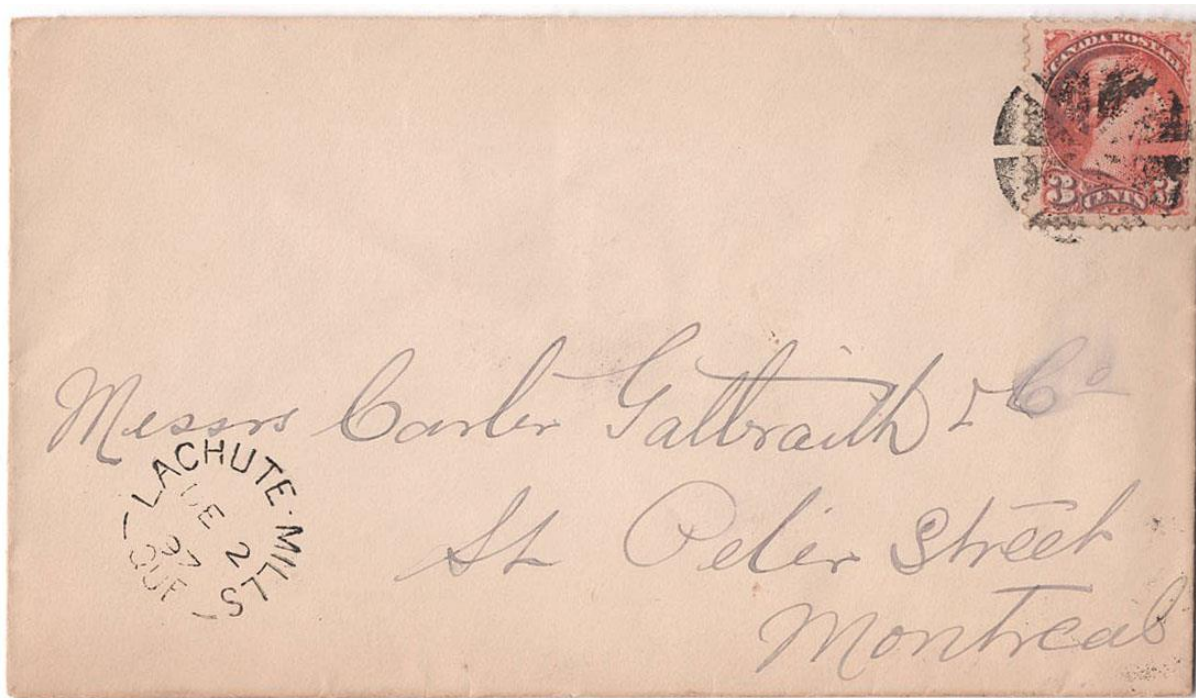 CANADA POSTAGE
3 CENTS 3
Messrs Carter Galbraith & Co
St Peter Street
Montreal
LACHUTE-MILLS
DE 2
97
QUE